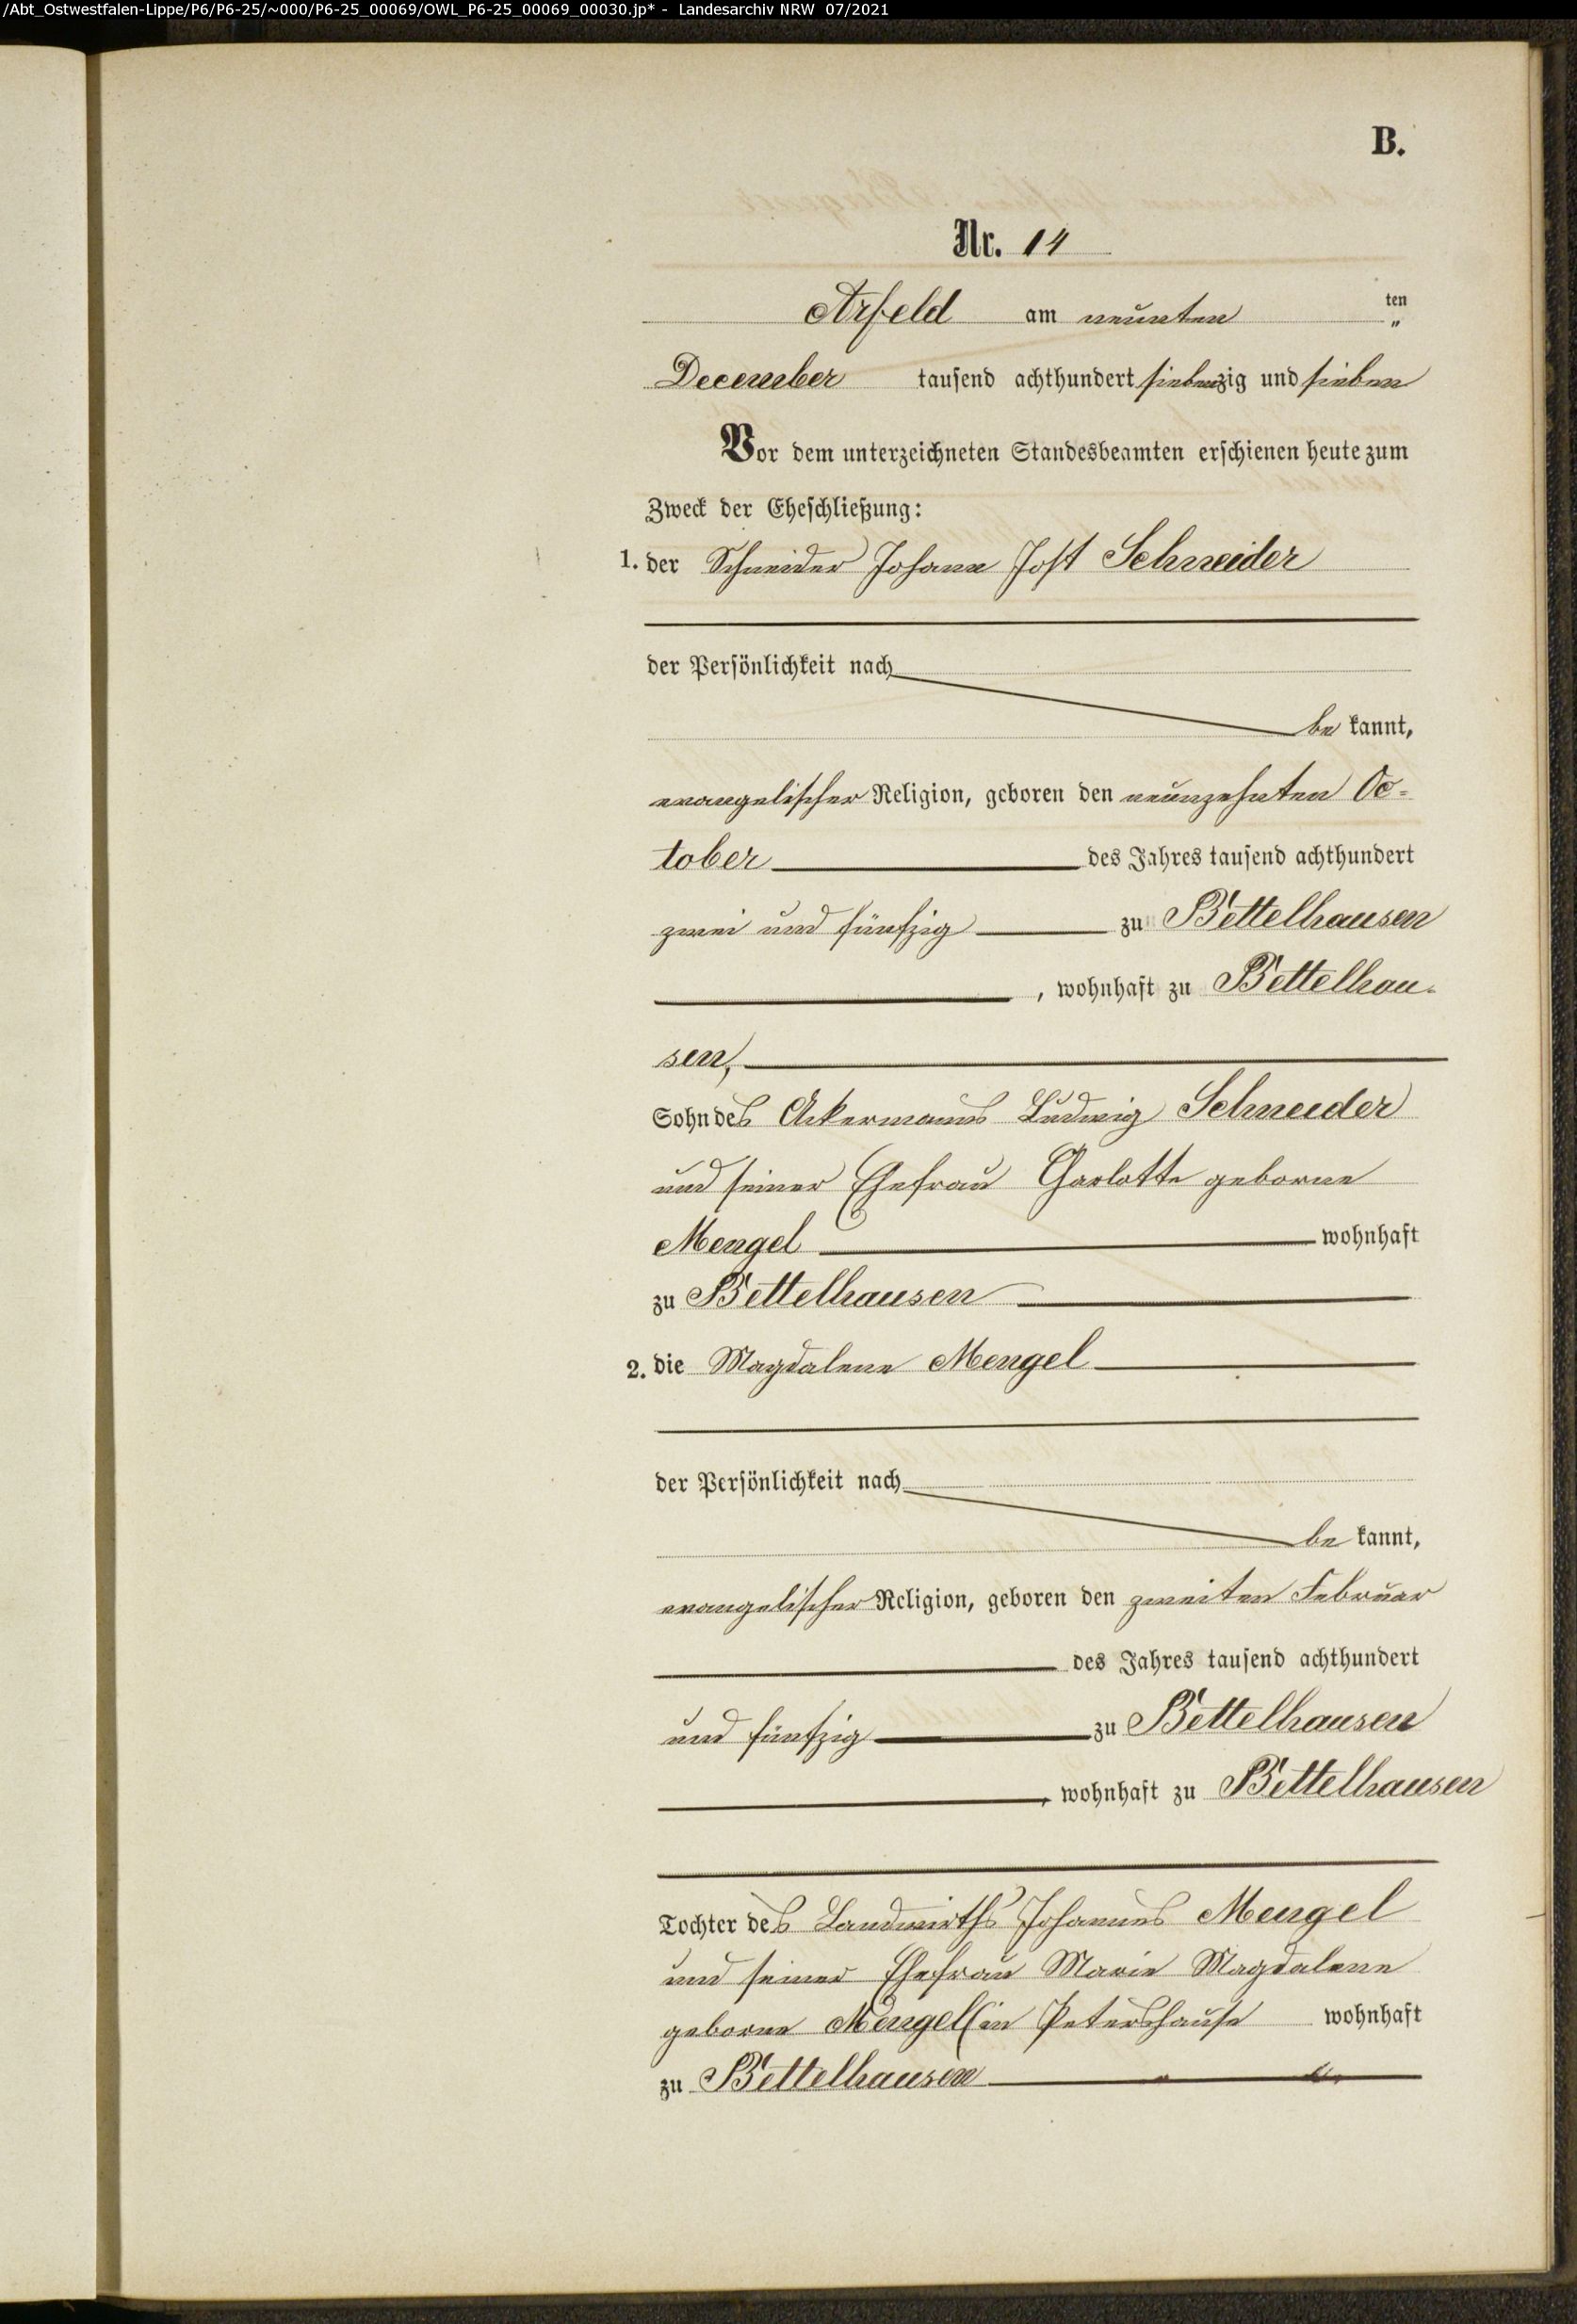 /Abt_Ostwestfalen-Lippe/P6/P6-25/~000/P6-25_00069/OWL_P6-25_00069_00030.jp* - Landesarchiv NRW 07/2021
B.
Nr. 14
Arfeld am neunten ten
„
December tausend achthundert siebenzig und sieben
Vor dem unterzeichneten Standesbeamten erschienen heute zum
Zweck der Eheschließung:
1. der Schneider Johann Jost Schneider
der Persönlichkeit nach
be kannt,
evangelischer Religion, geboren den neunzehnten Oc-
tober des Jahres tausend achthundert
zwei und fünfzig zu Bettelhausen
, wohnhaft zu Bettelhau-
sen,
Sohn des Ackermanns Ludwig Schneider
und seiner Ehefrau Charlotte geborne
Mengel wohnhaft
zu Bettelhausen
2. die Magdalene Mengel
der Persönlichkeit nach
be kannt,
evangelischer Religion, geboren den zweiten Februar
des Jahres tausend achthundert
und fünfzig zu Bettelhausen
, wohnhaft zu Bettelhausen
Tochter des Landwirths Johannes Mengel
und seiner Ehefrau Marie Magdalene
geborne Mengel (in Petershause wohnhaft
zu Bettelhausen